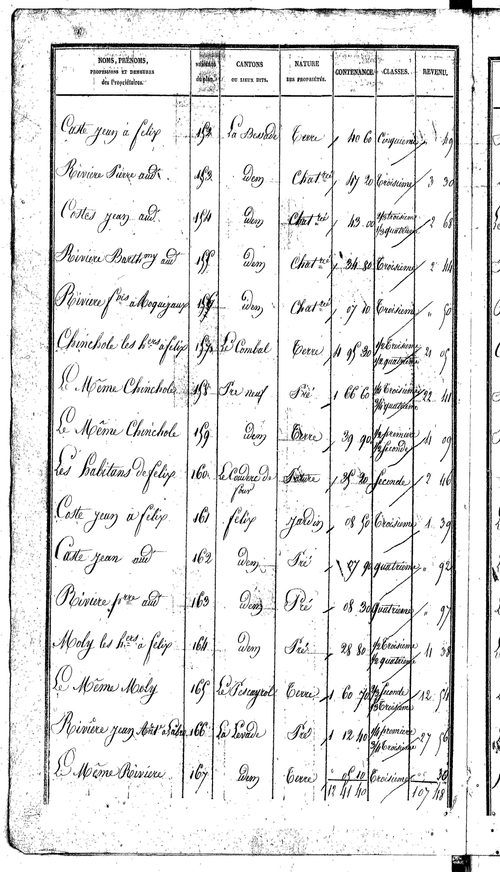 NOMS, PRÉNOMS, PROFESSIONS ET DEMEURES des Propriétaires. | du plan. | CANTONS OU LIEUX DITS. | NATURE DES PROPRIÉTÉS. | CONTENANCE. | CLASSES. | REVENU.
Caste jean à felix 152 La Bessade Terre 40 60 Cinquieme " 49
Riviere Pierre audt 153 idem Chatrée 47 20 Troisieme 3 30
Costes jean audt 154 idem Chatrée 43 00 1/2 troisieme 1/2 quatrieme 2 68
Riviere Barthmy audt 155 idem Chatrée 34 80 Troisieme 2 44
Riviere fois à 156 idem Chatrée 07 10 Troisieme " 50
Chinchole les hers à felix 157 Le Combal Terre 4 95 20 1/2 Troisieme 1/2 quatrieme 21 05
Le Même Chinchole 158 Pre neuf Pré 1 66 60 Troisieme quatrieme 22 41
Le Même Chinchole 159 idem Terre 29 90 1/2 premiere 1/2 seconde 4 09
Les habitans de felix 160 Le Couderc de four Pature 35 20 Seconde 2 46
Coste jean à felix 161 felix jardin 08 50 Troisieme 1 39
Caste jean audt 162 idem Pré 87 90 quatrieme " 92
Riviere pierre audt 163 idem Pré 08 30 quatrieme " 97
Moly les hers à felix 164 idem Pré 28 80 1/2 Troisieme 1/2 quatrieme 4 38
Le Même Moly 165 Le Pescayrol Terre 1 60 70 1/2 seconde 1/2 Troisieme 12 54
Riviere jean Ante à 166 La Levade Pré 1 12 40 1/4 premiere 3/4 Troisieme 27 56
Le Même Riviere 167 idem Terre " 05 10 Troisieme " 30
12 41 40 107 48